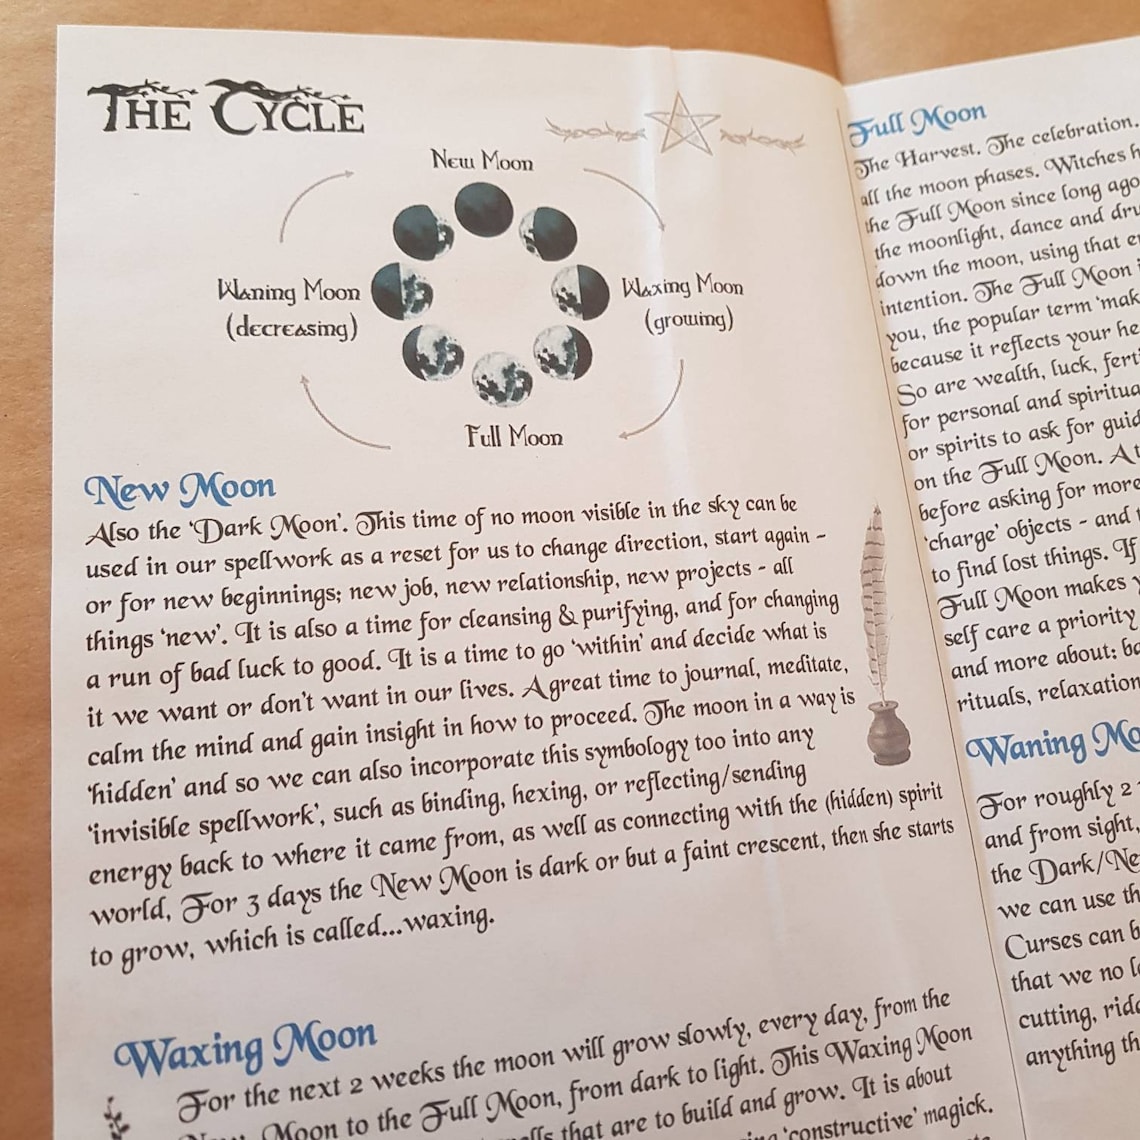 THE CYCLE
New Moon
Waning Moon
(decreasing)
Waxing Moon
(growing)
Full Moon
New Moon
Also the ‘Dark Moon’. This time of no moon visible in the sky can be
used in our spellwork as a reset for us to change direction, start again –
or for new beginnings; new job, new relationship, new projects – all
things ‘new’. It is also a time for cleansing & purifying, and for changing
a run of bad luck to good. It is a time to go ‘within’ and decide what is
it we want or don’t want in our lives. A great time to journal, meditate,
calm the mind and gain insight in how to proceed. The moon in a way is
‘hidden’ and so we can also incorporate this symbology too into any
‘invisible spellwork’, such as binding, hexing, or reflecting/sending
energy back to where it came from, as well as connecting with the (hidden) spirit
world, For 3 days the New Moon is dark or but a faint crescent, then she starts
to grow, which is called...waxing.
Waxing Moon
For the next 2 weeks the moon will grow slowly, every day, from the
New Moon to the Full Moon, from dark to light. This Waxing Moon
that are to build and grow. It is about
‘constructive’ magick.
Full Moon
The Harvest. The celebration.
all the moon phases. Witches
the Full Moon since long ago
the moonlight, dance and
down the moon, using that
intention. The Full Moon
you, the popular term
because it reflects your
So are wealth, luck,
for personal and
or spirits to ask for
on the Full Moon.
before asking for more
‘charge’ objects – and
to find lost things. If
Full Moon makes
self care a priority
and more about:
rituals, relaxation
Waning
For roughly 2
and from sight,
the Dark/
we can use
Curses can
that we no
cutting,
anything